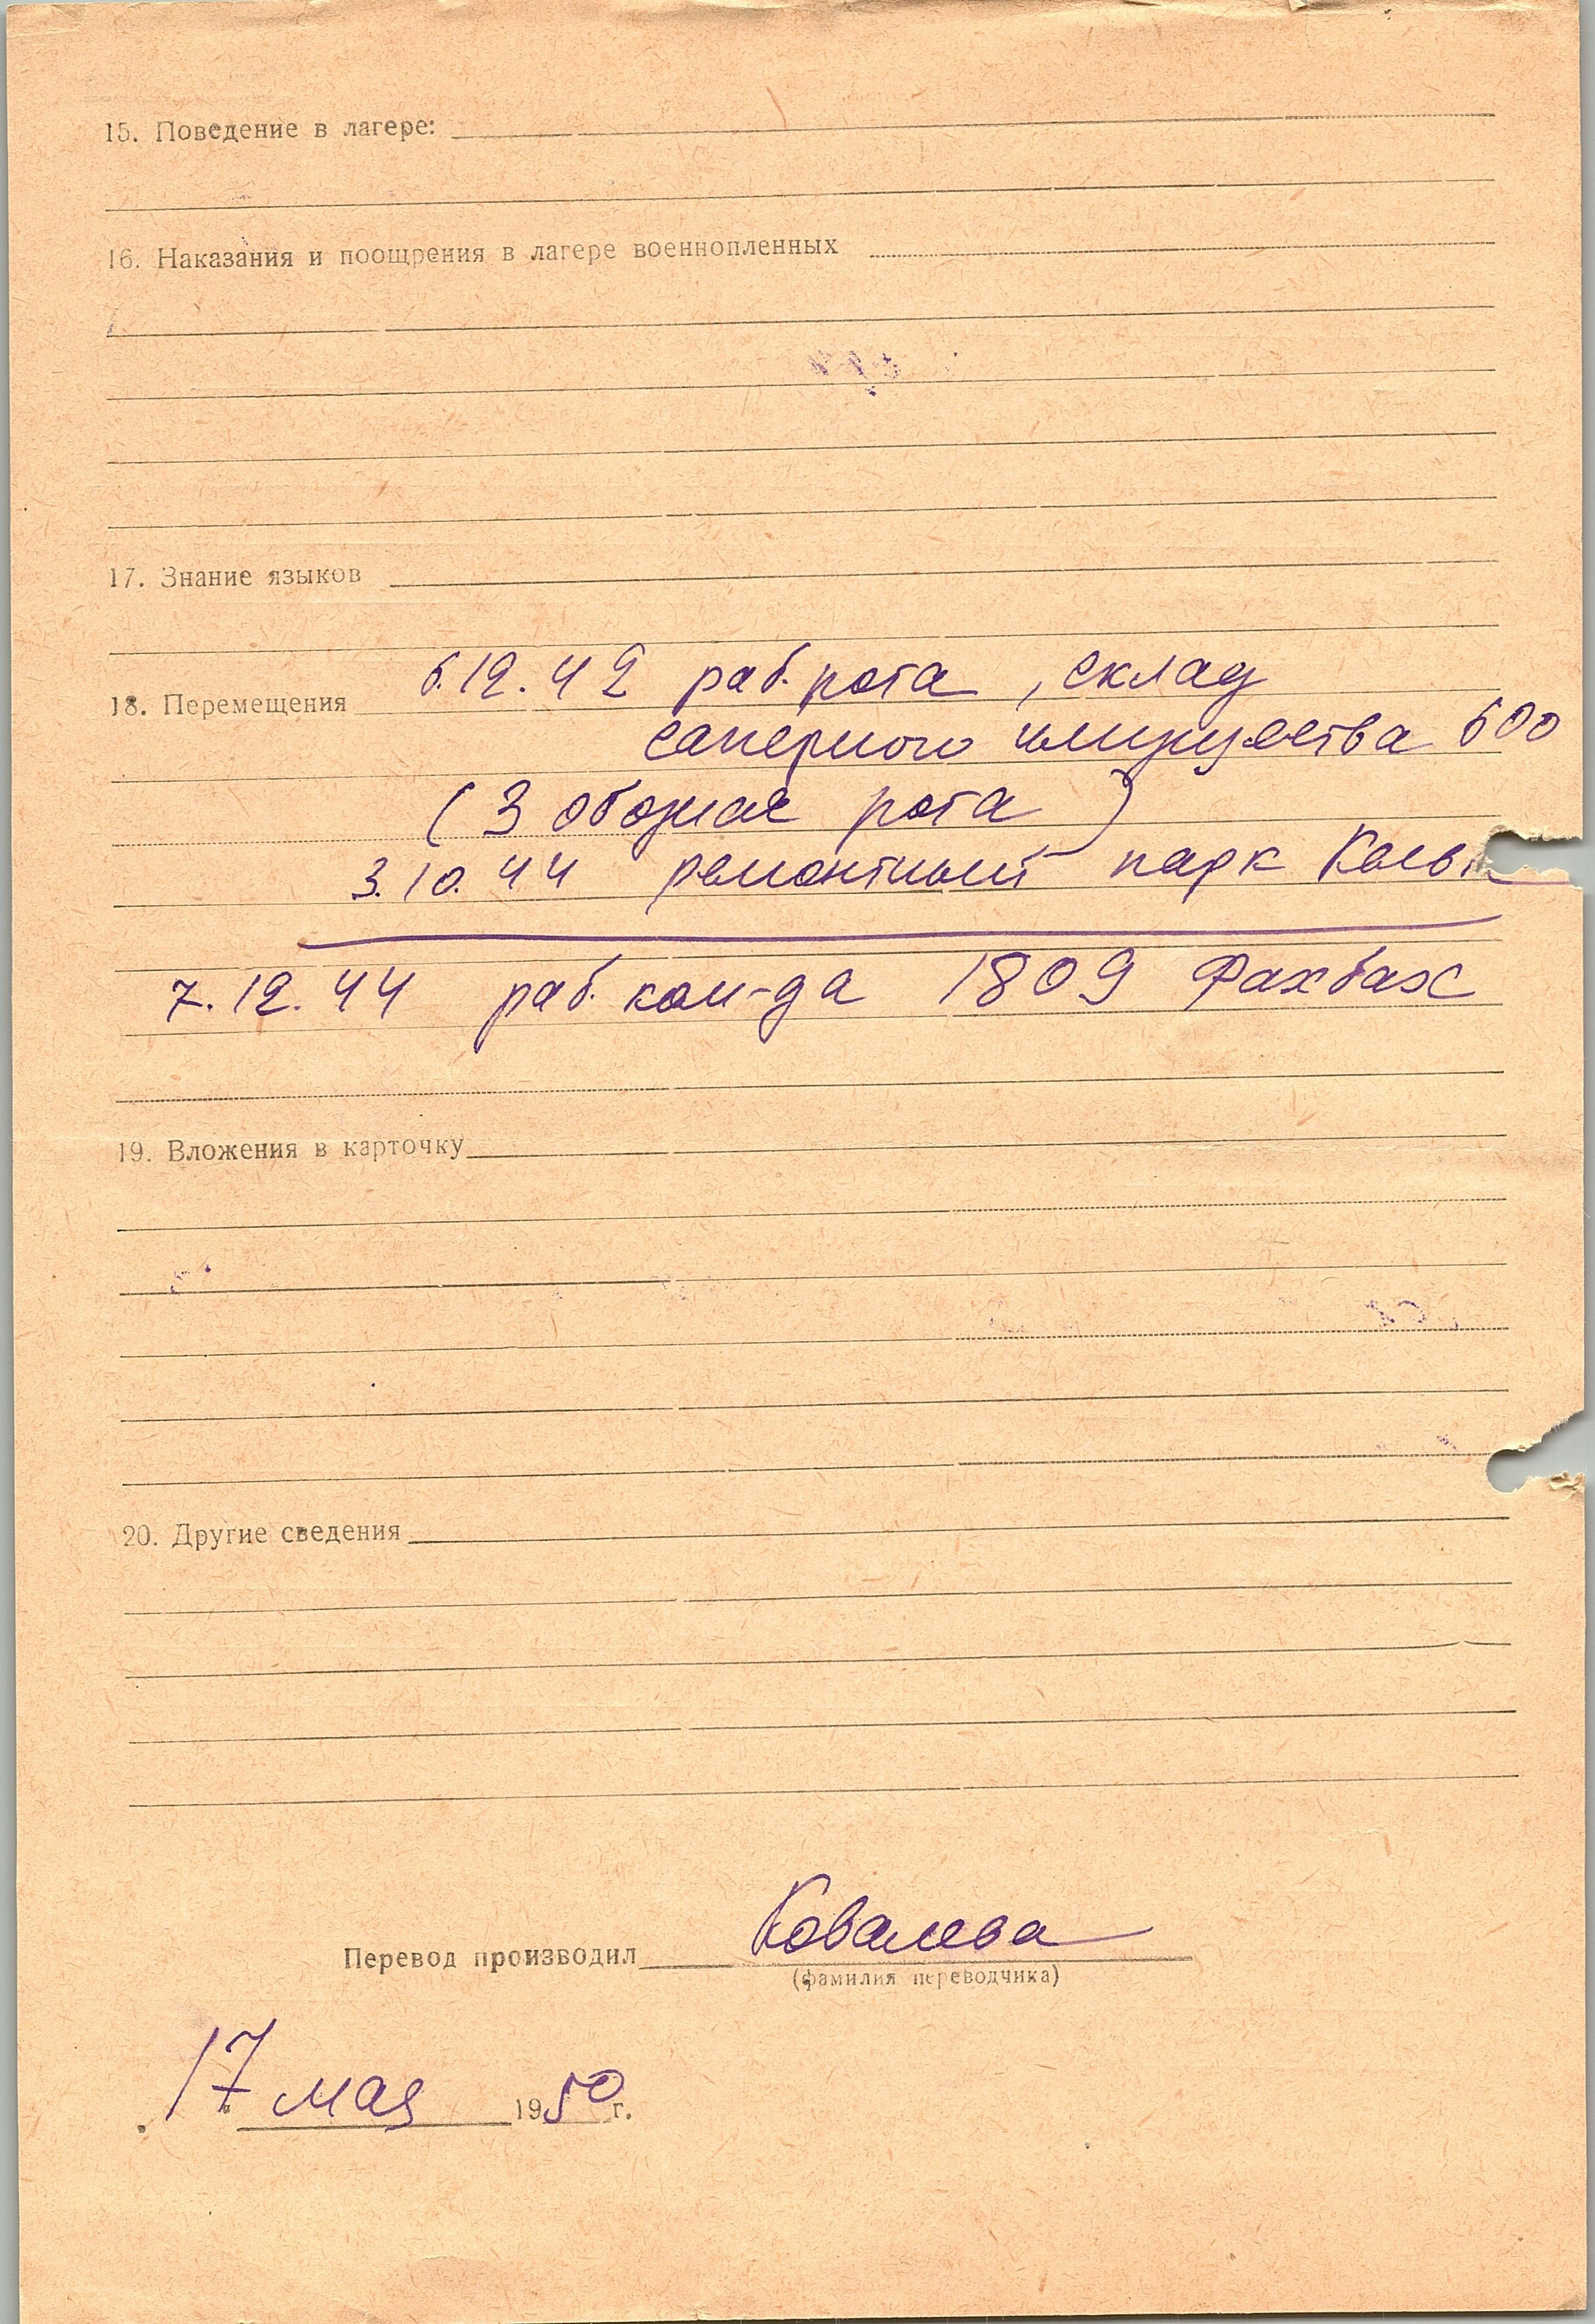 15. Поведение в лагере:
16. Наказания и поощрения в лагере военнопленных
17. Знание языков
18. Перемещения 6.12.42 раб. рота, склад
саперного имущества 600
(3 обозная рота)
3.10.44 ремонтный парк
7.12.44 раб. ком-да 1809 Фахбах
19. Вложения в карточку
20. Другие сведения
Перевод производил Ковалева
(фамилия переводчика)
17 мая 1950 г.